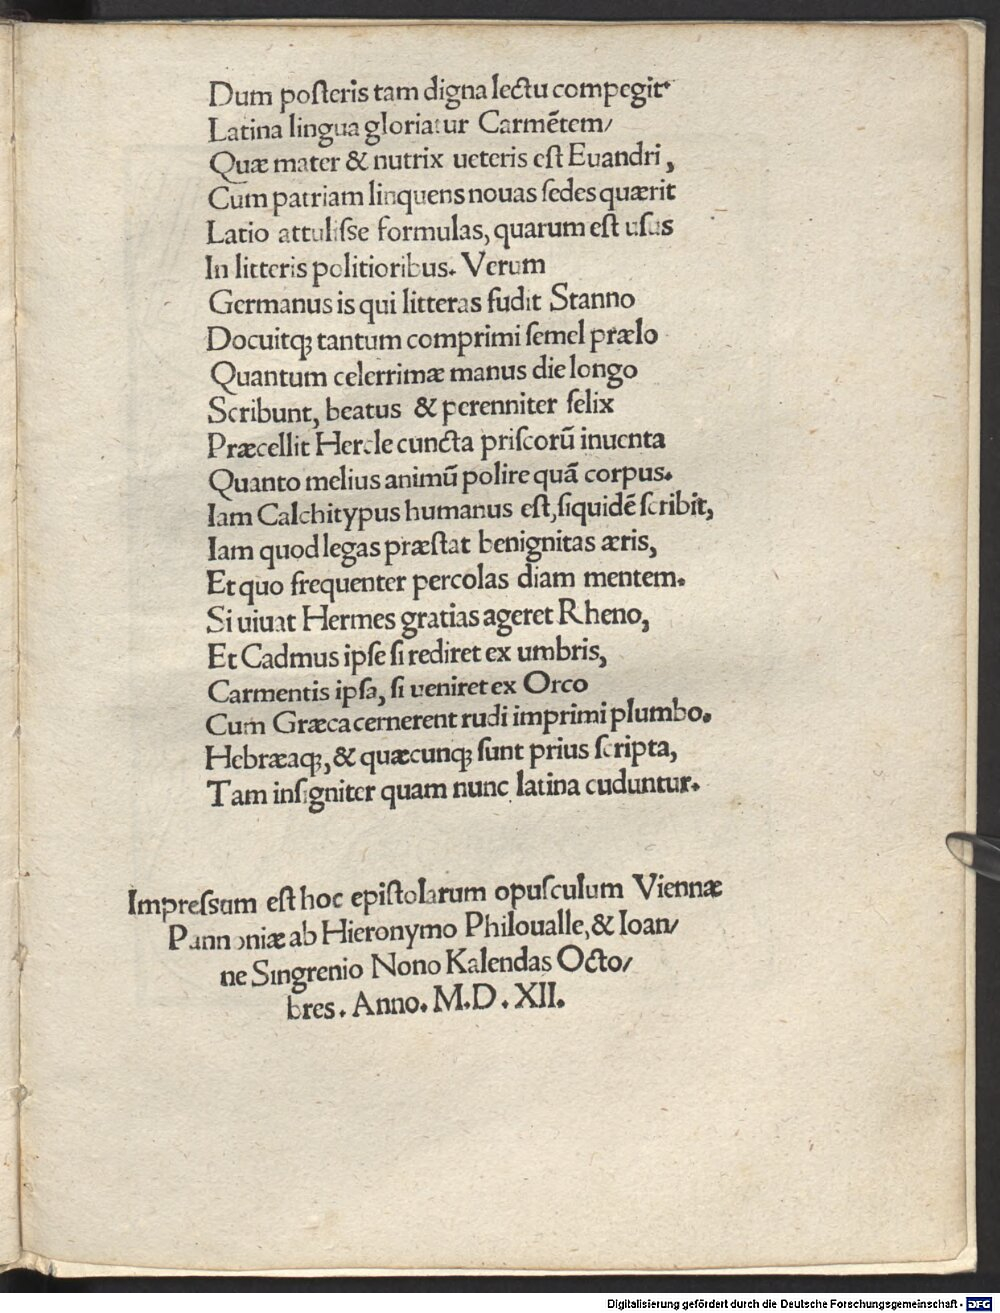 Dum poſteris tam digna lectu compegit
Latina lingua gloriatur Carmētem/
Quæ mater & nutrix ueteris eſt Euandri,
Cum patriam linquens nouas ſedes quærit
Latio attuliſſe formulas, quarum eſt uſus
In litteris politioribus. Verum
Germanus is qui litteras fudit Stanno
Docuitqꝫ tantum comprimi ſemel prælo
Quantum celerrimæ manus die longo
Scribunt, beatus & perenniter felix
Præcellit Hercle cuncta priſcorū inuenta
Quanto melius animū polire quā corpus.
Iam Calchitypus humanus eſt, ſiquidē ſcribit,
Iam quod legas præſtat benignitas æris,
Et quo frequenter percolas diam mentem.
Si uiuat Hermes gratias ageret Rheno,
Et Cadmus ipſe ſi rediret ex umbris,
Carmentis ipſa, ſi ueniret ex Orco
Cum Græca cernerent rudi imprimi plumbo.
Hebræaqꝫ, & quæcunqꝫ ſunt prius ſcripta,
Tam inſigniter quam nunc latina cuduntur.
Impreſſum eſt hoc epiſtolarum opuſculum Viennæ
Pannoniæ ab Hieronymo Philoualle, & Ioan/
ne Singrenio Nono Kalendas Octo/
bres. Anno. M.D.XII.
Digitalisierung gefördert durch die Deutsche Forschungsgemeinschaft - DFG